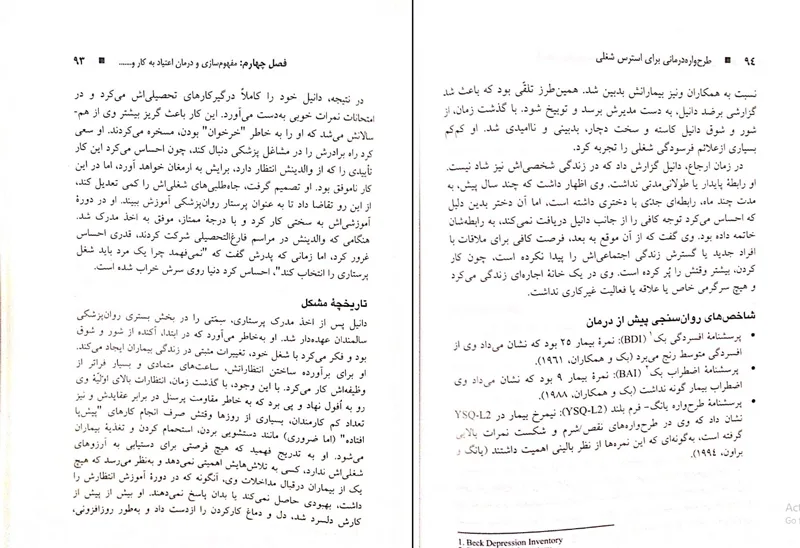 فصل چهارم: مفهوم‌سازی و درمان اعتیاد به کار و...... ■ ۹۳
در نتیجه، دانیل خود را کاملاً درگیرکارهای تحصیلی‌اش می‌کرد و در
امتحانات نمرات خوبی به‌دست می‌آورد. این کار باعث گریز بیشتر وی از هم-
سالانش می‌شد که او را به خاطر "خرخوان" بودن، مسخره می‌کردند. او سعی
کرد راه برادرش را در مشاغل پزشکی دنبال کند، چون احساس می‌کرد این کار
تأییدی را که از والدینش انتظار دارد، برایش به ارمغان خواهد آورد، اما در این
کار ناموفق بود. او تصمیم گرفت، جاه‌طلبی‌های شغلی‌اش را کمی تعدیل کند،
از این رو تقاضا داد تا به عنوان پرستار روان‌پزشکی آموزش ببیند. او در دورۀ
آموزشی‌اش به سختی کار کرد و با درجۀ ممتاز، موفق به اخذ مدرک شد.
هنگامی که والدینش در مراسم فارغ‌التحصیلی شرکت کردند، قدری احساس
غرور کرد، اما زمانی که پدرش گفت که "نمی‌فهمد چرا یک مرد باید شغل
پرستاری را انتخاب کند"، احساس کرد دنیا روی سرش خراب شده است.
تاریخچۀ مشکل
دانیل پس از اخذ مدرک پرستاری، سِمَتی را در بخش بستری روان‌پزشکی
سالمندان عهده‌دار شد. او به‌خاطر می‌آورد که در ابتدا، آکنده از شور و شوق
بود و فکر می‌کرد با شغل خود، تغییرات مثبتی در زندگی بیماران ایجاد می‌کند.
او برای برآورده ساختن انتظاراتش، ساعت‌های متمادی و بسیار فراتر از
وظیفه‌اش کار می‌کرد. با این وجود، با گذشت زمان، انتظارات بالای اولیّۀ وی
رو به اُفول نهاد و پی برد که به خاطر مقاومت پرسنل در برابر عقایدش و نیز
تعداد کم کارمندان، بسیاری از روزها وقتش صرف انجام کارهای "پیش‌پا
افتاده" (اما ضروری) مانند دستشویی بردن، استحمام کردن و تغذیۀ بیماران
می‌شود. او به تدریج فهمید که هیچ فرصتی برای دستیابی به آرزوهای
شغلی‌اش ندارد، کسی به تلاش‌هایش اهمیتی نمی‌دهد و به‌نظر می‌رسد که هیچ
یک از بیماران درقبال مداخلات وی، آنگونه که در دورۀ آموزش انتظارش را
داشت، بهبودی حاصل نمی‌کند یا بدان پاسخ نمی‌دهند. او بیش از پیش از
کارش دلسرد شد، دل و دماغ کارکردن را ازدست داد و به‌طور روزافزونی،
۹۴ ■ طرح‌واره‌درمانی برای استرس شغلی
نسبت به همکاران ونیز بیمارانش بدبین شد. همین‌طرز تلقّی بود که باعث شد
گزارشی برضد دانیل، به دست مدیرش برسد و توبیخ شود. با گذشت زمان، از
شور و شوق دانیل کاسته و سخت دچار، بدبینی و ناامیدی شد. او کم‌کم
بسیاری ازعلائم فرسودگی شغلی را تجربه کرد.
در زمان ارجاع، دانیل گزارش داد که در زندگی شخصی‌اش نیز شاد نیست.
او رابطۀ پایدار یا طولانی‌مدتی نداشت. وی اظهار داشت که چند سال پیش، به
مدت چند ماه، رابطه‌ای جدّی با دختری داشته است، اما آن دختر بدین دلیل
که احساس می‌کرد توجه کافی را از جانب دانیل دریافت نمی‌کند، به رابطه‌شان
خاتمه داده بود. وی گفت که از آن موقع به بعد، فرصت کافی برای ملاقات با
افراد جدید یا گسترش زندگی اجتماعی‌اش را پیدا نکرده است، چون کار
کردن، بیشتر وقتش را پُر کرده است. وی در یک خانۀ اجاره‌ای زندگی می‌کرد
و هیچ سرگرمی خاص یا علاقه یا فعالیت غیرکاری نداشت.
شاخص‌های روان‌سنجی پیش از درمان
• پرسشنامۀ افسردگی بک¹ (BDI): نمرۀ بیمار ۲۵ بود که نشان می‌داد وی از
افسردگی متوسط رنج می‌برد (بک و همکاران، ۱۹۶۱).
• پرسشنامۀ اضطراب بک² (BAI): نمرۀ بیمار ۹ بود که نشان می‌داد وی
اضطراب بیمار گونه نداشت (بک و همکاران، ۱۹۸۸).
• پرسشنامۀ طرح‌واره یانگ- فرم بلند (YSQ-L2): نیمرخ بیمار در YSQ-L2
نشان داد که وی در طرح‌واره‌های نقص/شرم و شکست نمرات بالایی
گرفته است، به‌گونه‌ای که این نمره‌ها از نظر بالینی اهمیت داشتند (یانگ و
براون، ۱۹۹۴).
1. Beck Depression Inventory